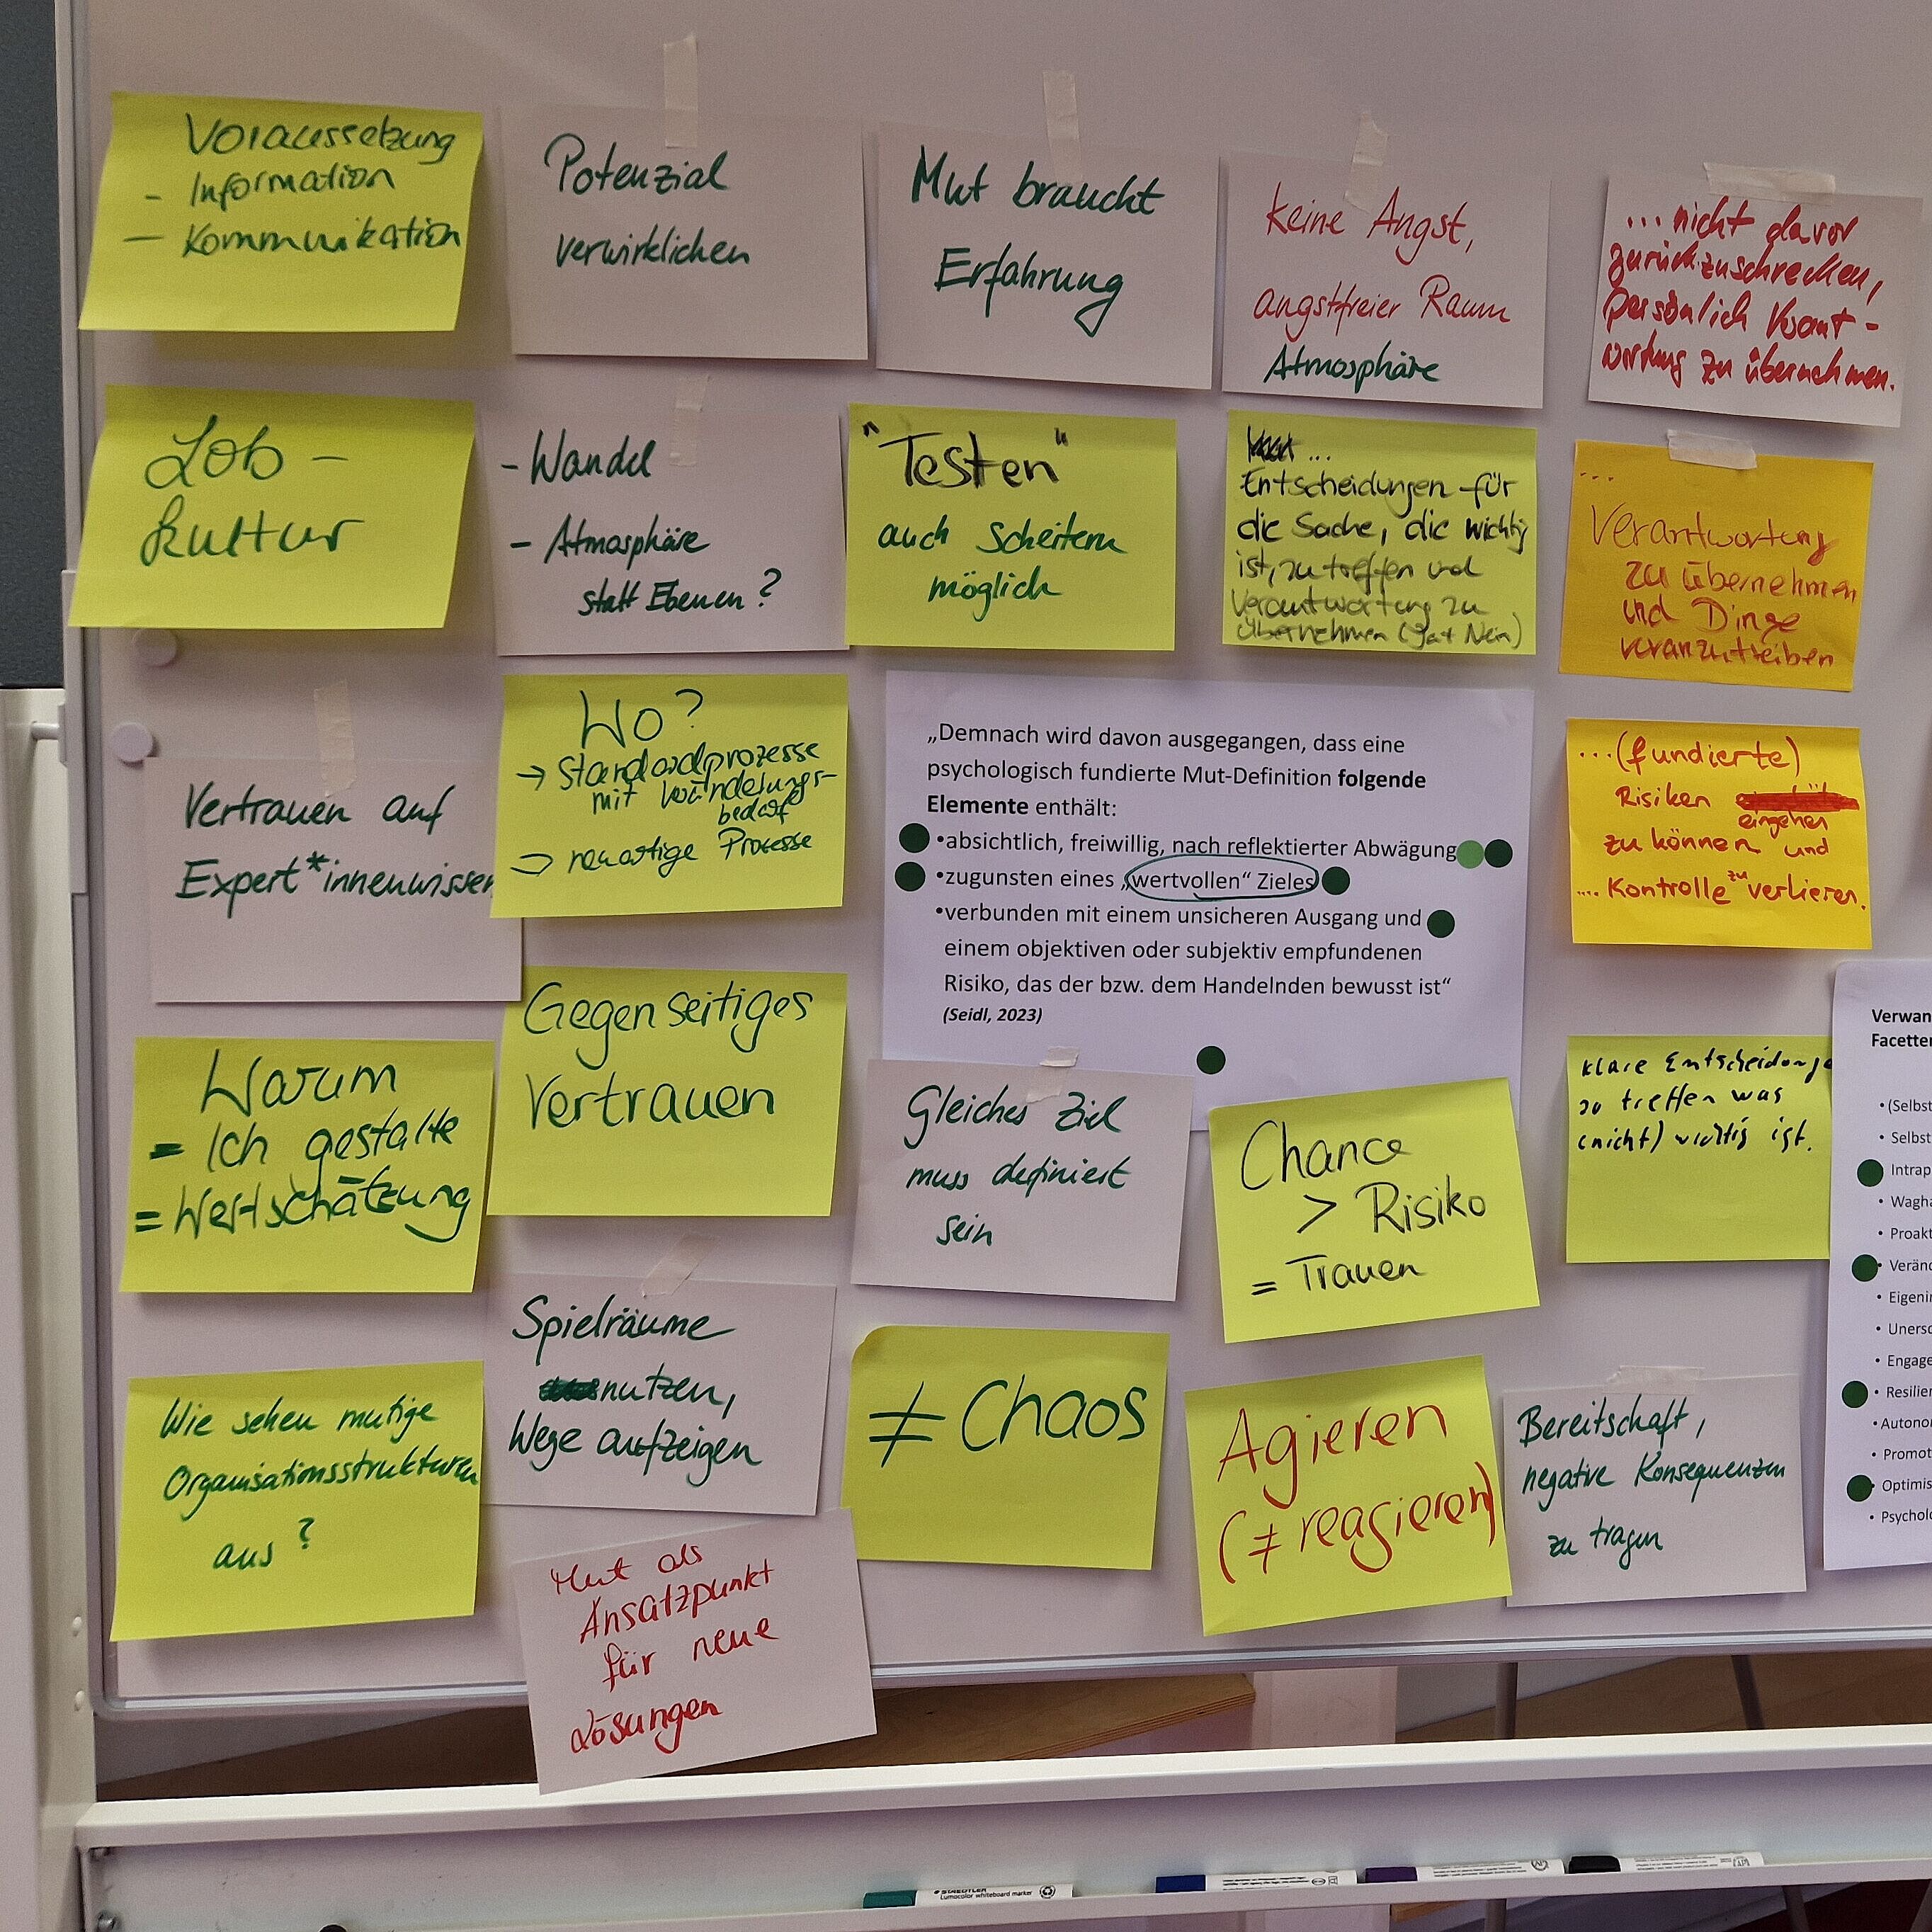 Voraussetzung
- Information
- Kommunikation
Potenzial
verwirklichen
Mut braucht
Erfahrung
keine Angst,
angstfreier Raum
Atmosphäre
... nicht davor
zurückzuschrecken,
persönlich Verant-
wortung zu übernehmen.
Lob-
kultur
- Wandel
- Atmosphäre
statt Ebenen?
"Testen"
auch Scheitern
möglich
...
Entscheidungen für
die Sache, die wichtig
ist, zu treffen und
Verantwortung zu
übernehmen (Ja + Nein)
...
Verantwortung
zu übernehmen
und Dinge
voranzutreiben
Vertrauen auf
Expert*innenwissen
Wo?
→ Standardprozesse
mit Veränderungs-
bedarf
⇒ neuartige Prozesse
„Demnach wird davon ausgegangen, dass eine
psychologisch fundierte Mut-Definition folgende
Elemente enthält:
•absichtlich, freiwillig, nach reflektierter Abwägung
•zugunsten eines „wertvollen“ Zieles
•verbunden mit einem unsicheren Ausgang und
einem objektiven oder subjektiv empfundenen
Risiko, das der bzw. dem Handelnden bewusst ist“
(Seidl, 2023)
...(fundierte)
Risiken
eingehen
zu können und
.... Kontrolle zu verlieren.
Warum
= Ich gestalte
= Wertschätzung
Gegenseitiges
Vertrauen
Gleiches Ziel
muss definiert
sein
Chance
> Risiko
= Trauen
klare Entscheidunge
zu treffen was
(nicht) wichtig ist.
Wie sehen mutige
Organisationsstrukturen
aus?
Spielräume
nutzen,
Wege aufzeigen
≠ Chaos
Agieren
(≠ reagieren)
Bereitschaft,
negative Konsequenzen
zu tragen
Mut als
Ansatzpunkt
für neue
Lösungen
Verwan
Facetten
• (Selbst
• Selbst
• Intrap
• Wagha
• Proakt
• Veränd
• Eigenin
• Unersc
• Engage
• Resilien
• Autonon
• Promot
• Optimis
• Psycholo
STAEDTLER
Lumocolor whiteboard marker